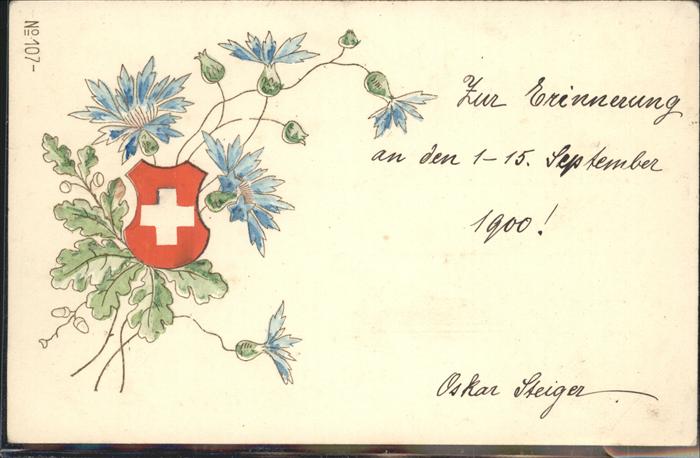 No 107-
Zur Erinnerung
an den 1-15. September
1900!
Oskar Steiger